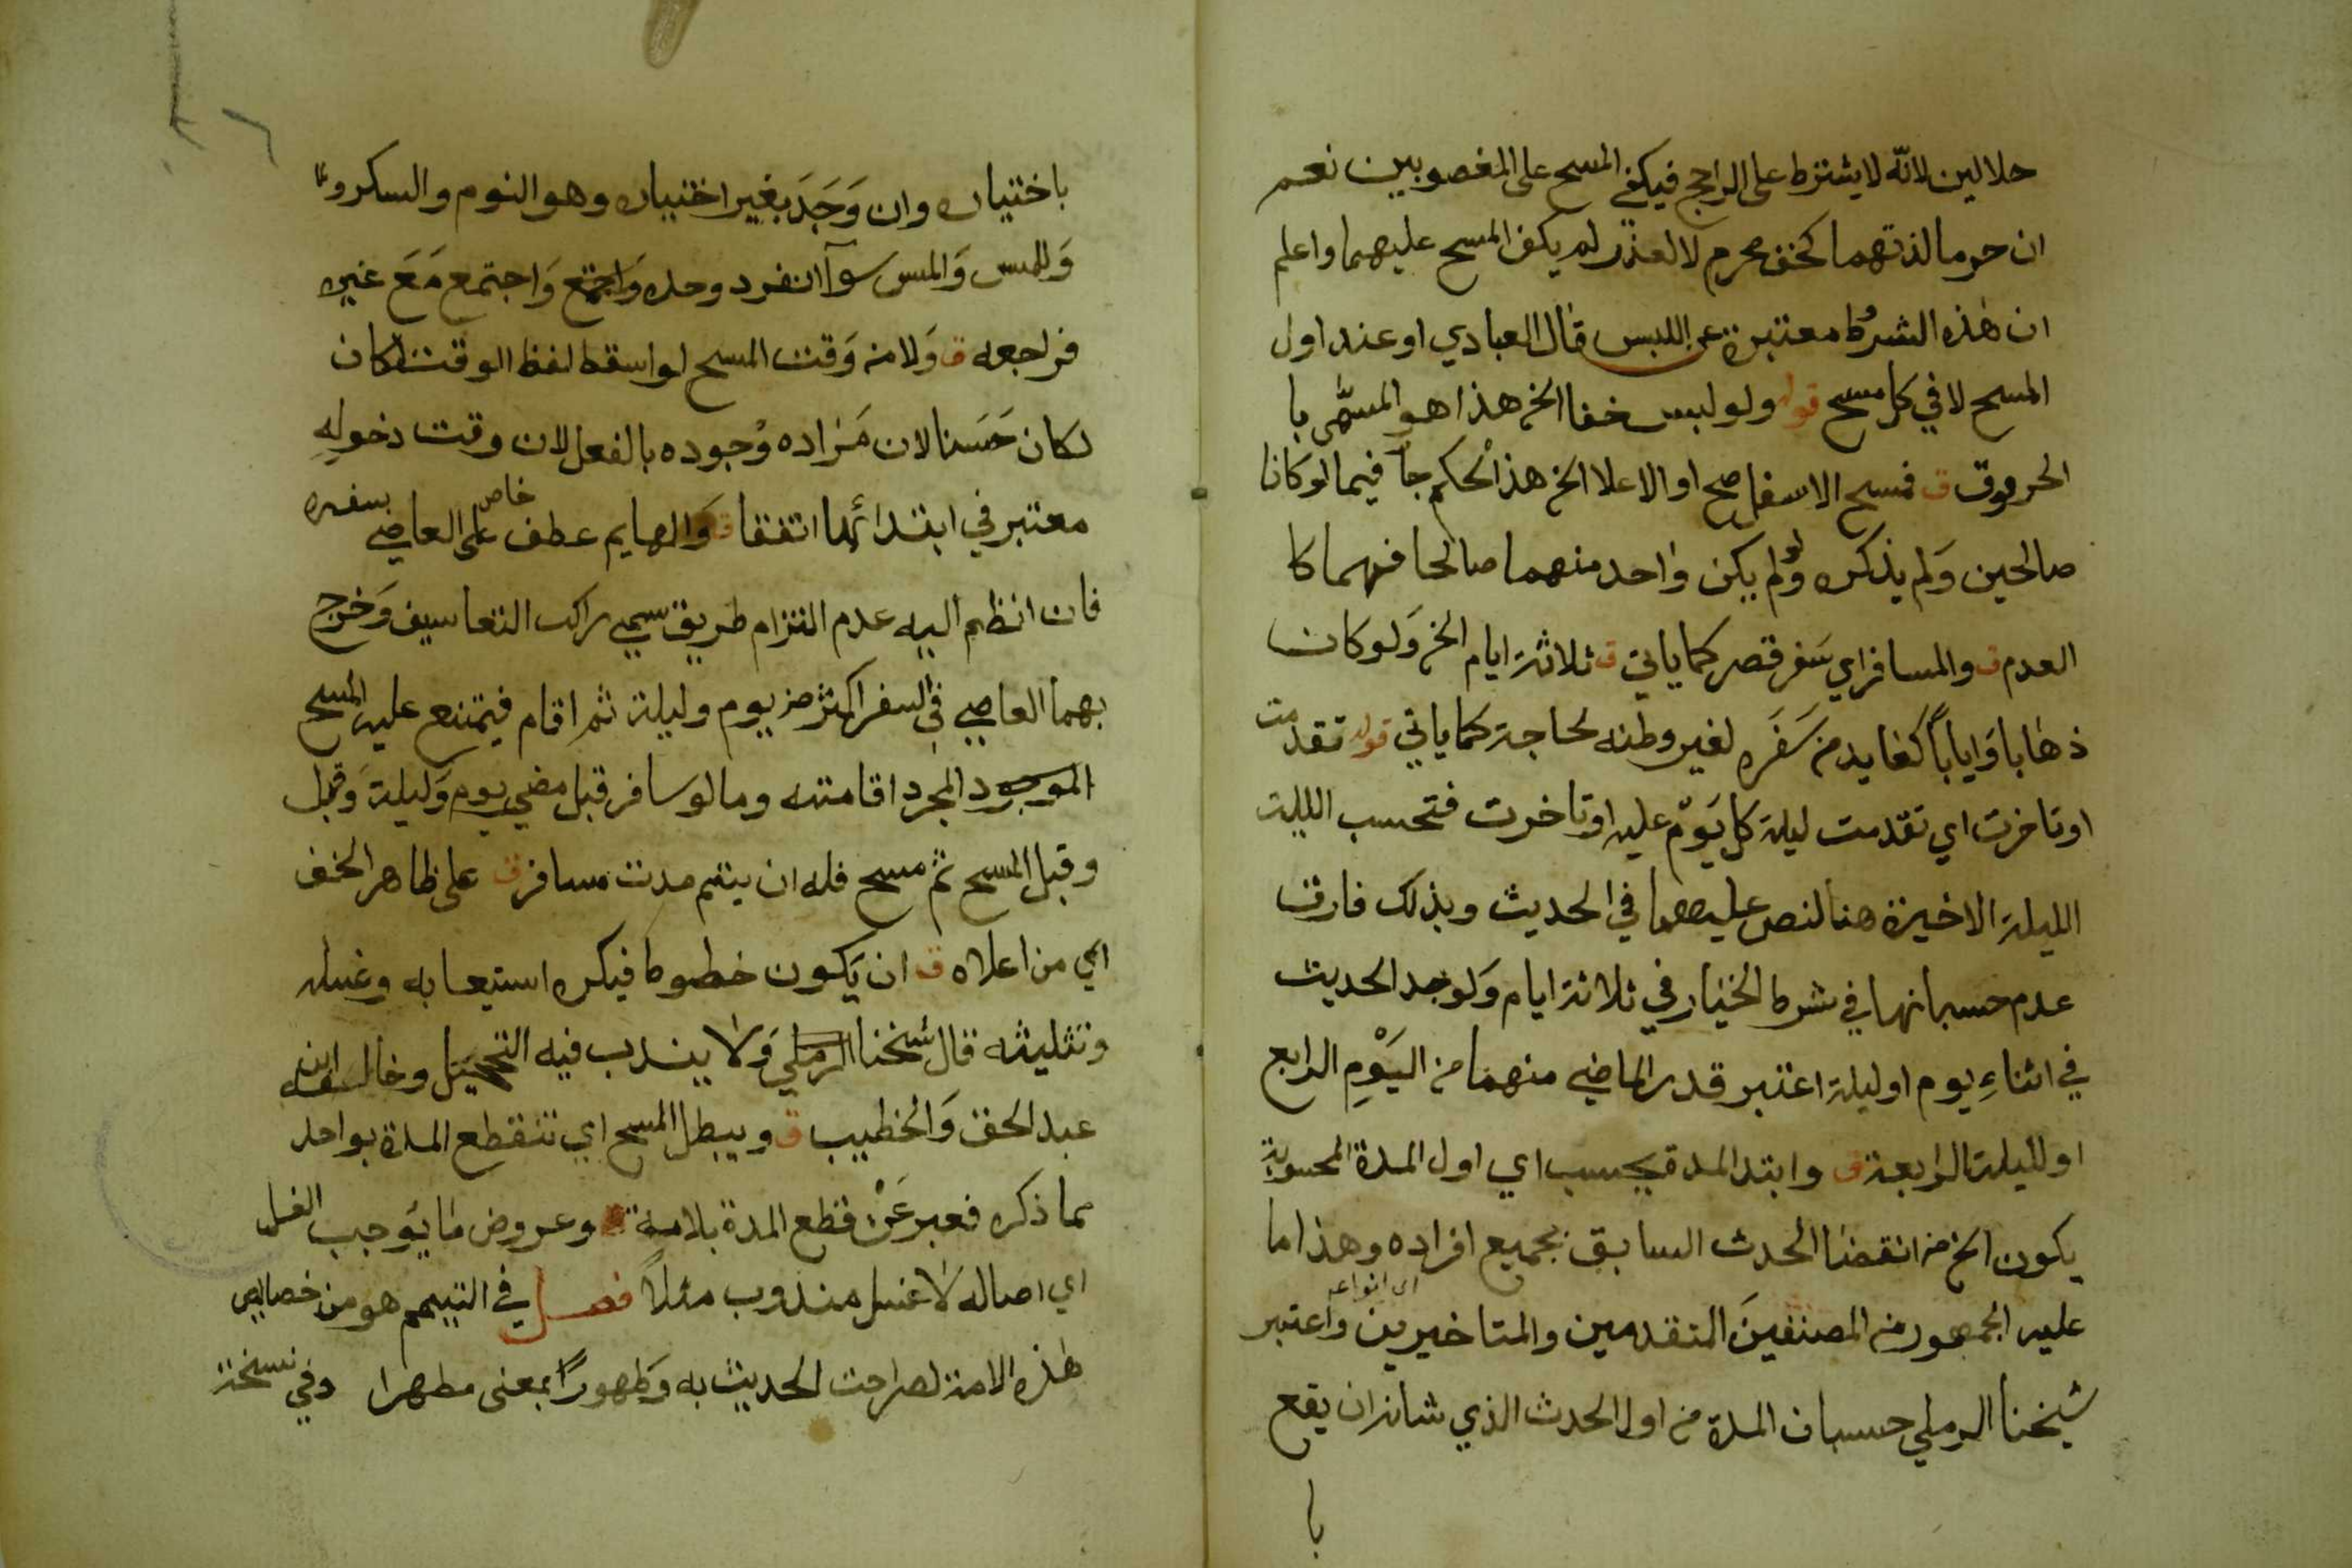 حلالين لانه لا يشترط على الراجح فيكفي المسح على المغصوبين نعم
ان حرما لذتهما كخف محرم لا لعذر لم يكف المسح عليهما واعلم
ان هٰذه الشروط معتبرة عن اللبس قال العبادي او عند اول
المسح لا في كل مسح قوله ولو لبس خفا الخ هذا هو المسمى با
الحرموق ق فمسح الاسفل صح او الاعلا الخ هذا الحكم جا فيما لو كانا
صالحين وَلم يذكره ولو لم يكن واحد منهما صالحا فهما كا
العدم ق والمسافر اي سَفر قصر كما ياتي ق ثلاثة ايام الخ وَلو كان
ذهابا وَاياباً كغايد من سَفَرِه لغير وطنه لحاجة كما ياتي قوله تقدمت
او تاخرت اي تقدمت ليلة كل يَوْم عليه او تاخرت فتحسب الليلة
الليلة الاخيرة هنا لنص عليهما في الحديث وبذلك فارق
عدم حسبانها في شرط الخيار في ثلاثة ايام وَلو وجد الحديث
في اثناءِ يوم او ليلة اعتبر قدر الماضي منهما من اليَوْمِ الرابع
او لليلة الرابعة ق وابتدا المدة يحسب اي اول المدة المحسوبة
يكون الخ من انقضا الحدث السابق بجميع افراده وهذا ما
اى انواعه
عليه الجمهور من المصنفينَ المتقدمين والمتاخيرين واعتبر
شيخنا الرملي حسبان المدة من اول الحدث الذي شانه ان يقع
با
باختياره وان وَجَدَ بغير اختياره وهو النوم والسكر
وَللمس وَالمس سوآ انفرد وحده وَاجتمع وَاجتمع مَعَ غيره
فراجعه ق وَلا من وَقت المسح لو اسقط لفظ الوقت لكان
لكان حَسَنا لان مَراده وُجوده بالفعل لان وقت دخولهِ
معتبر في ابتدائها اتفقا ق وَالهايم عطف خاص على العاصي بسفره
فان انظم اليه عدم التزام طريق سمي راكب التعاسيف وَخرج
بهما العاصي في السفر اكثر من يوم وليلة ثم اقام فيمتنع عليه المسح
الموجود لمجرد اقامته وما لو سافر قبل مضي يوم وَليلة وَقبل
وقبل المسح ثم مسح فله ان يتم مدت مسافر ق على ظاهر الخف
اي من اعلاه ق ان يَكون خطوطا فيكره استيعابه وغسله
وتثليثه قال شيخنا الرملي وَلا يندب فيه التحجيل وخالفه ابن
عبد الحق وَالخطيب ق ويبطل المسح اي تنقطع المدة بواحد
مما ذكره فعبر عَنْ قطع المدة بلامية وعروض ما يوجب الغسل
اي اصاله لا غسل مندوب مثلاً فصل في التيمم هو من خصايص
هٰذه الامة لصراحت الحديث به وَطهوراً بمعنى مطهرا وفي نسخة